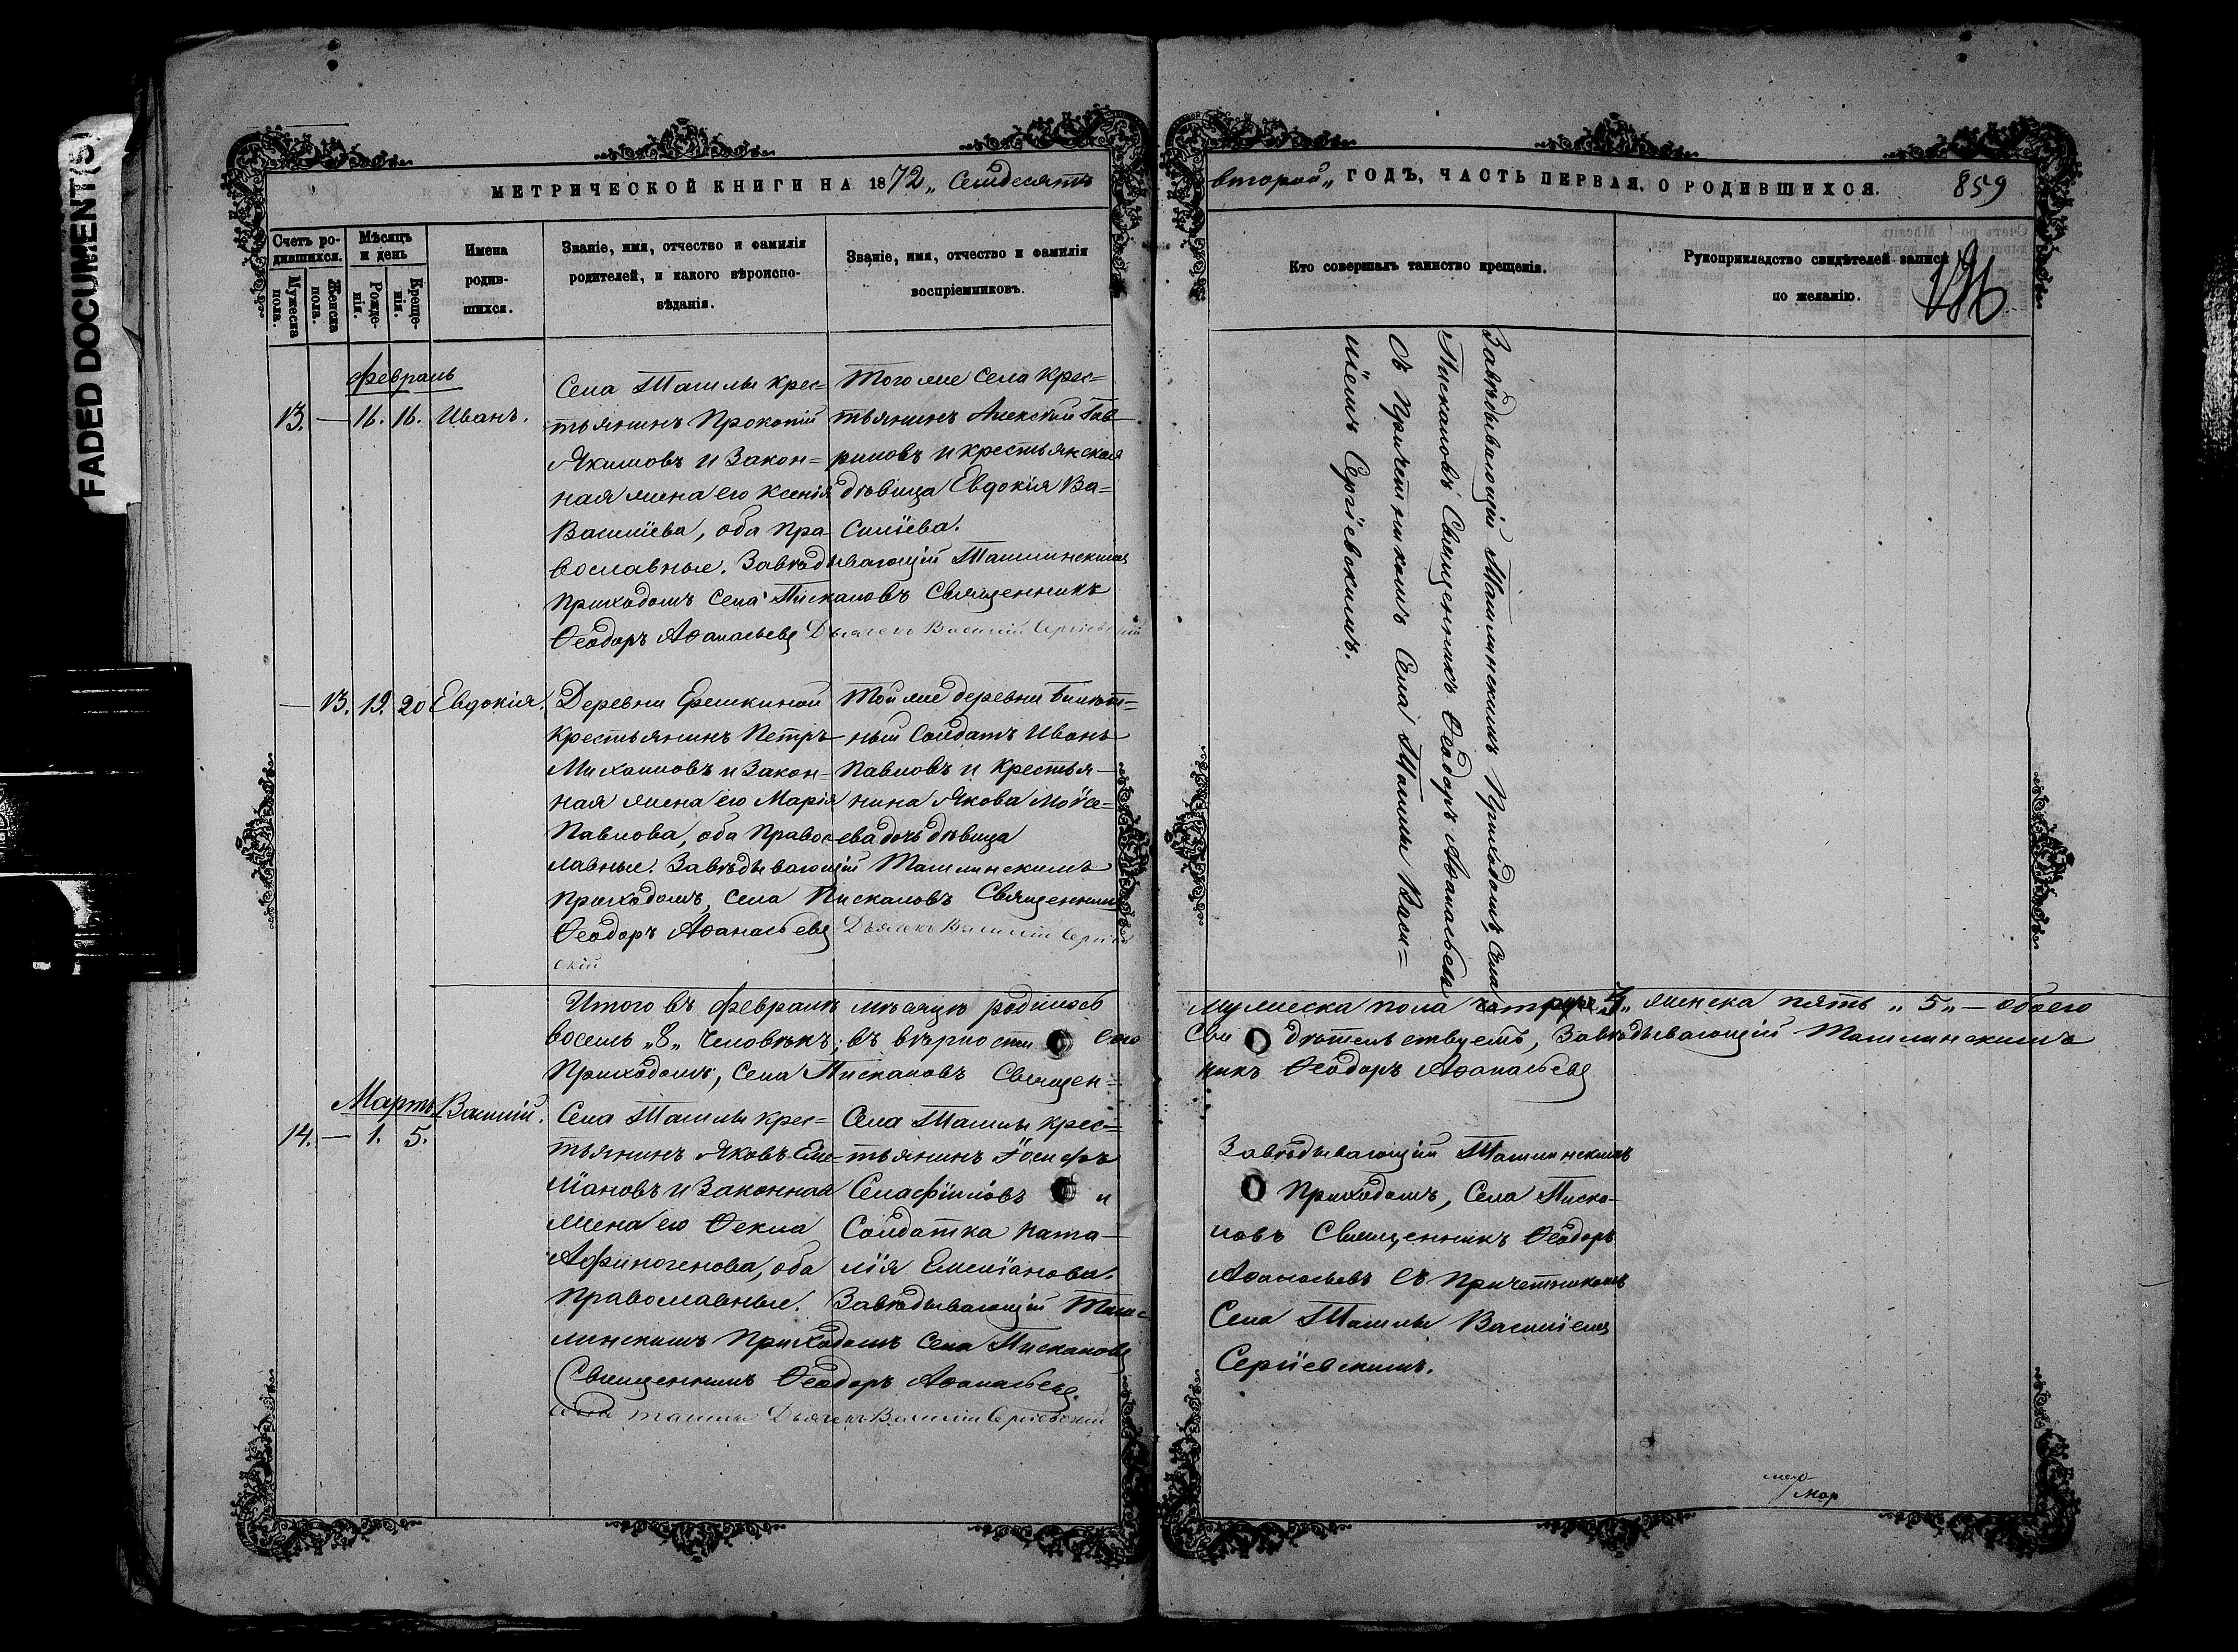 FADED DOCUMENT(S)
МЕТРИЧЕСКОЙ КНИГИ НА 1872 „ Семдесятъ
второй „ ГОДЪ, ЧАСТЬ ПЕРВАЯ, О РОДИВШИХСЯ.
859
Счетъ ро-
дившихся.
Мужеска
пола.
Женска
пола.
Мѣсяцъ
и день
Рожде-
нія.
Креще-
нія.
Имена
родив-
шихся.
Званіе, имя, отчество и фамилія
родителей, и какого вѣроиспо-
вѣданія.
Званіе, имя, отчество и фамилія
воспріемниковъ.
Кто совершалъ таинство крещенія.
Рукоприкладство свидѣтелей записи
по желанію.
Февраль
13. — 16. 16. Иванъ.
Села Ташлы крес=
тьянинъ Прокопій
Якимовъ и закон=
ная жена его Ксенія
Васильева, оба пра-
вославные. Завѣдывающій Ташлинскимъ
Приходомъ села Пискаловъ Священникъ
Ѳеодоръ Аѳанасьевъ Дьячекъ Василій Сергіевскій
Того же села крес=
тьянинъ Алексѣй Гав
риловъ и крестьянская
дѣвица Евдокія Ва=
силіева.
Завѣдывающій Ташлинскимъ Приходомъ, Села
Пискаловъ Священникъ Ѳеодоръ Аѳанасьевъ
съ Причетникомъ Села Ташлы Васи=
ліемъ Сергіевскимъ.
— 13. 19. 20 Евдокія.
Деревни Ерешкиной
крестьянинъ Петръ
Михаиловъ и закон-
ная жена его Марія
Павлова, оба правос-
лавные. Завѣдывающій Ташлинскимъ
приходомъ, села Пискаловъ Священникъ
Ѳеодоръ Аѳанасьевъ Дьячекъ Василій Сергіев
скій
Той же деревни билет=
ный солдатъ Иванъ
Павловъ и крестья-
нина Якова Моѵсе=
ева дочь дѣвица
Итого въ февралѣ мѣсяцѣ родилось
мужеска пола четыре „4„ женска пять „5„ — обоего
восемь „8„ человѣкъ; въ вѣрности сего
сви дѣтельствуетъ, Завѣдывающій Ташлинскимъ
Приходомъ, Села Пискаловъ Священ=
никъ Ѳеодоръ Аѳанасьевъ
Мартъ
14. — 1. 5.
Василій.
Села Ташлы крес=
тьянинъ Яковъ Еме-
ліановъ и законная
жена его Ѳекла
Афиногенова, оба
православные. Завѣдывающій Таш=
линскимъ Приходомъ села Пискаловъ
Священникъ Ѳеодоръ Аѳанасьевъ.
села Ташлы Дьячекъ Василій Сергіевскій
Села Ташлы крес=
тьянинъ Іосифъ
Селафіиловъ и
Солдатка Ната-
лія Емеліанова.
Завѣдывающій Ташлинскимъ
Приходомъ, Села Писка-
ловъ Священникъ Ѳеодоръ
Аѳанасьевъ съ Причетникомъ
Села Ташлы Василіемъ
Сергіевскимъ.